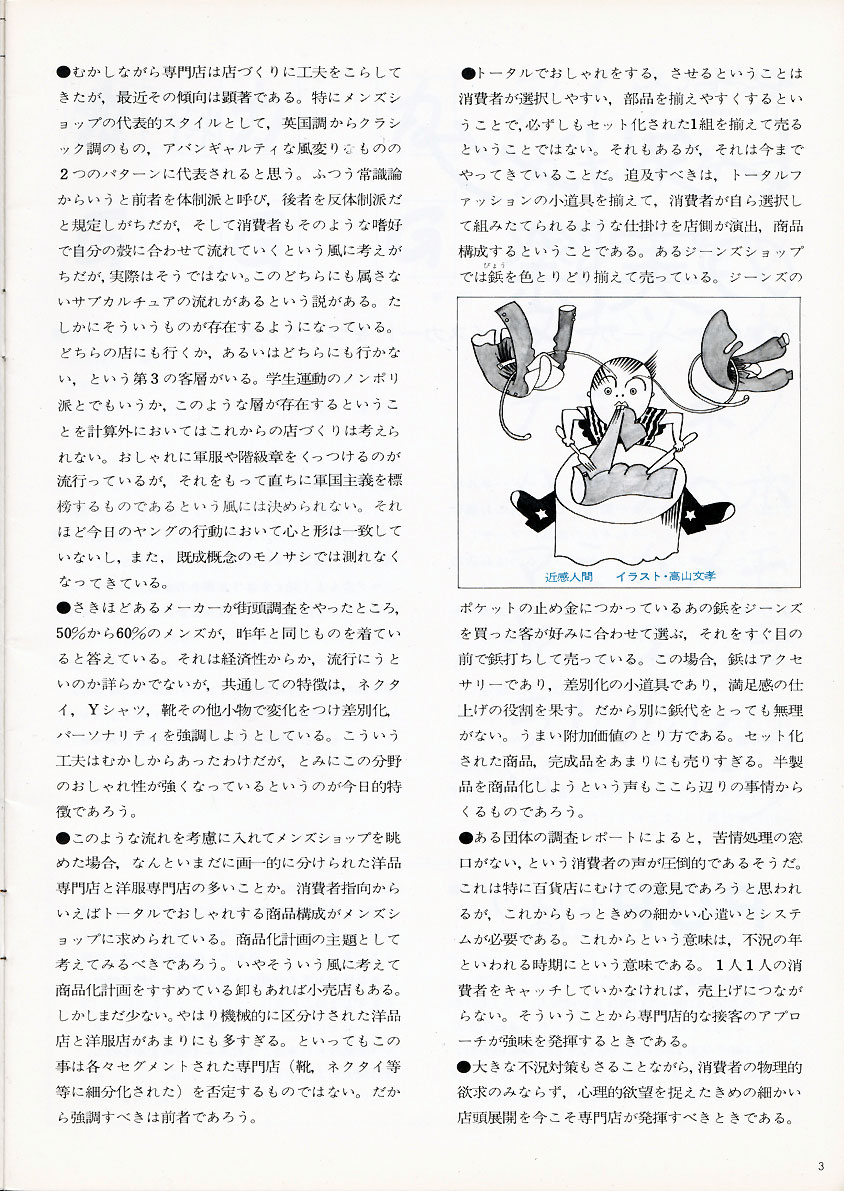 ●むかしながら専門店は店づくりに工夫をこらして
きたが，最近その傾向は顕著である。特にメンズシ
ョップの代表的スタイルとして，英国調からクラシ
ック調のもの，アバンギャルティな風変りなものの
2つのパターンに代表されると思う。ふつう常識論
からいうと前者を体制派と呼び，後者を反体制派だ
と規定しがちだが，そして消費者もそのような嗜好
で自分の殻に合わせて流れていくという風に考えが
ちだが，実際はそうではない。このどちらにも属さな
いサブカルチュアの流れがあるという説がある。た
しかにそういうものが存在するようになっている。
どちらの店にも行くか，あるいはどちらにも行かな
い，という第3の客層がいる。学生運動のノンポリ
派とでもいうか，このような層が存在するというこ
とを計算外においてはこれからの店づくりは考えら
れない。おしゃれに軍服や階級章をくっつけるのが
流行っているが，それをもって直ちに軍国主義を標
榜するものであるという風には決められない。それ
ほど今日のヤングの行動において心と形は一致して
いないし，また，既成概念のモノサシでは測れなく
なってきている。
●さきほどあるメーカーが街頭調査をやったところ，
50％から60％のメンズが，昨年と同じものを着てい
ると答えている。それは経済性からか，流行にうと
いのか詳らかでないが，共通しての特徴は，ネクタ
イ，Yシャツ，靴その他小物で変化をつけ差別化，
パーソナリティを強調しようとしている。こういう
工夫はむかしからあったわけだが，とみにこの分野
のおしゃれ性が強くなっているというのが今日的特
徴であろう。
●このような流れを考慮に入れてメンズショップを眺
めた場合，なんといまだに画一的に分けられた洋品
専門店と洋服専門店の多いことか。消費者指向から
いえばトータルでおしゃれする商品構成がメンズシ
ョップに求められている。商品化計画の主題として
考えてみるべきであろう。いやそういう風に考えて
商品化計画をすすめている卸もあれば小売店もある。
しかしまだ少ない。やはり機械的に区分けされた洋品
店と洋服店があまりにも多すぎる。といってもこの
事は各々セグメントされた専門店（靴，ネクタイ等
等に細分化された）を否定するものではない。だか
ら強調すべきは前者であろう。
●トータルでおしゃれをする，させるということは
消費者が選択しやすい，部品を揃えやすくするとい
うことで，必ずしもセット化された1組を揃えて売る
ということではない。それもあるが，それは今まで
やってきていることだ。追及すべきは，トータルフ
ァッションの小道具を揃えて，消費者が自ら選択し
て組みたてられるような仕掛けを店側が演出，商品
構成するということである。あるジーンズショップ
びょう
では鋲を色とりどり揃えて売っている。ジーンズの
近感人間　イラスト・高山文孝
ポケットの止め金につかっているあの鋲をジーンズ
を買った客が好みに合わせて選ぶ，それをすぐ目の
前で鋲打ちして売っている。この場合，鋲はアクセ
サリーであり，差別化の小道具であり，満足感の仕
上げの役割を果す。だから別に鋲代をとっても無理
がない。うまい附加価値のとり方である。セット化
された商品，完成品をあまりにも売りすぎる。半製
品を商品化しようという声もここら辺りの事情から
くるものであろう。
●ある団体の調査レポートによると，苦情処理の窓
口がない，という消費者の声が圧倒的であるそうだ。
これは特に百貨店にむけての意見であろうと思われ
るが，これからもっときめの細かい心遣いとシステ
ムが必要である。これからという意味は，不況の年
といわれる時期にという意味である。1人1人の消
費者をキャッチしていかなければ，売上げにつなが
らない。そういうことから専門店的な接客のアプロ
ーチが強味を発揮するときである。
●大きな不況対策もさることながら，消費者の物理的
欲求のみならず，心理的欲望を捉えたきめの細かい
店頭展開を今こそ専門店が発揮すべきときである。
3